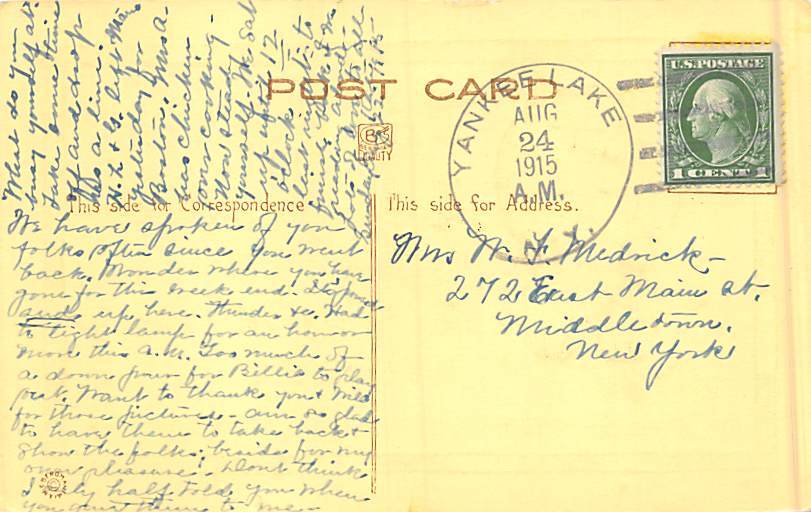 POST CARD
This side for Correspondence
This side for Address.
YANKEE LAKE
AUG
24
1915
A.M.
N.Y.
U.S. POSTAGE
1 CENT 1
Mrs W. F. Medrick
272 East Main St.
Middletown,
New York
We have spoken of you
folks often since you went
back. Wonder where you have
gone for this week end.
up here. Thunder &c. Had
to light lamp for an hour or
more this A.M. Too much of
a down pour for Billie to play
post. Want to thank you &
for those pictures - am so glad
to have them to take back &
show the folks, beside for my
own pleasure. Don't think
I only half told you when
you sent them to me -
What do you
busy yourself at.
Take some time
off and drop
us a line.
H. L. & G. left
yesterday for
Boston. Mrs A.
our cooking.
Now steady
yourself. We sat
up until 12
o'clock
last night to
finish